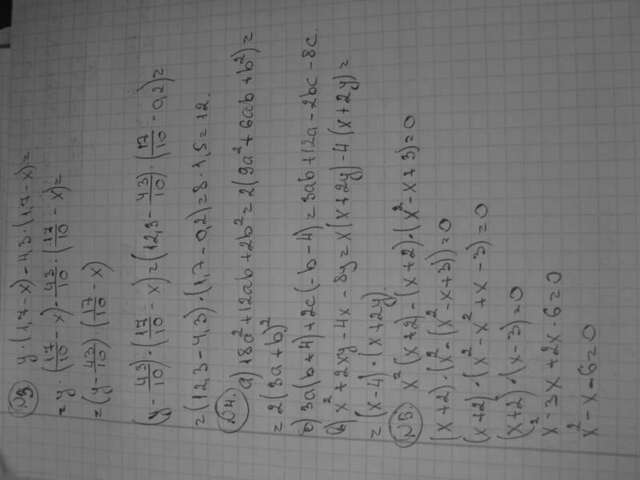 №3 y·(1,7-x)-4,3·(1,7-x)=
=y·(17/10-x)-43/10·(17/10-x)=
=(y-43/10)·(17/10-x)
(y-43/10)·(17/10-x)=(12,3-43/10)·(17/10-0,2)=
=(12,3-4,3)·(1,7-0,2)=8·1,5=12.
№4. а) 18a²+12ab+2b²=2(9a²+6ab+b²)=
=2(3a+b)²
б) 3a(b+4)+2c(-b-4)=3ab+12a-2bc-8c
в) x²+2xy-4x-8y=x(x+2y)-4(x+2y)=
=(x-4)·(x+2y)
№5. x²(x+2)-(x+2)·(x²-x+3)=0
(x+2)·(x²-(x²-x+3))=0
(x+2)·(x²-x²+x-3)=0
(x+2)·(x-3)=0
x²-3x+2x-6=0
x²-x-6=0